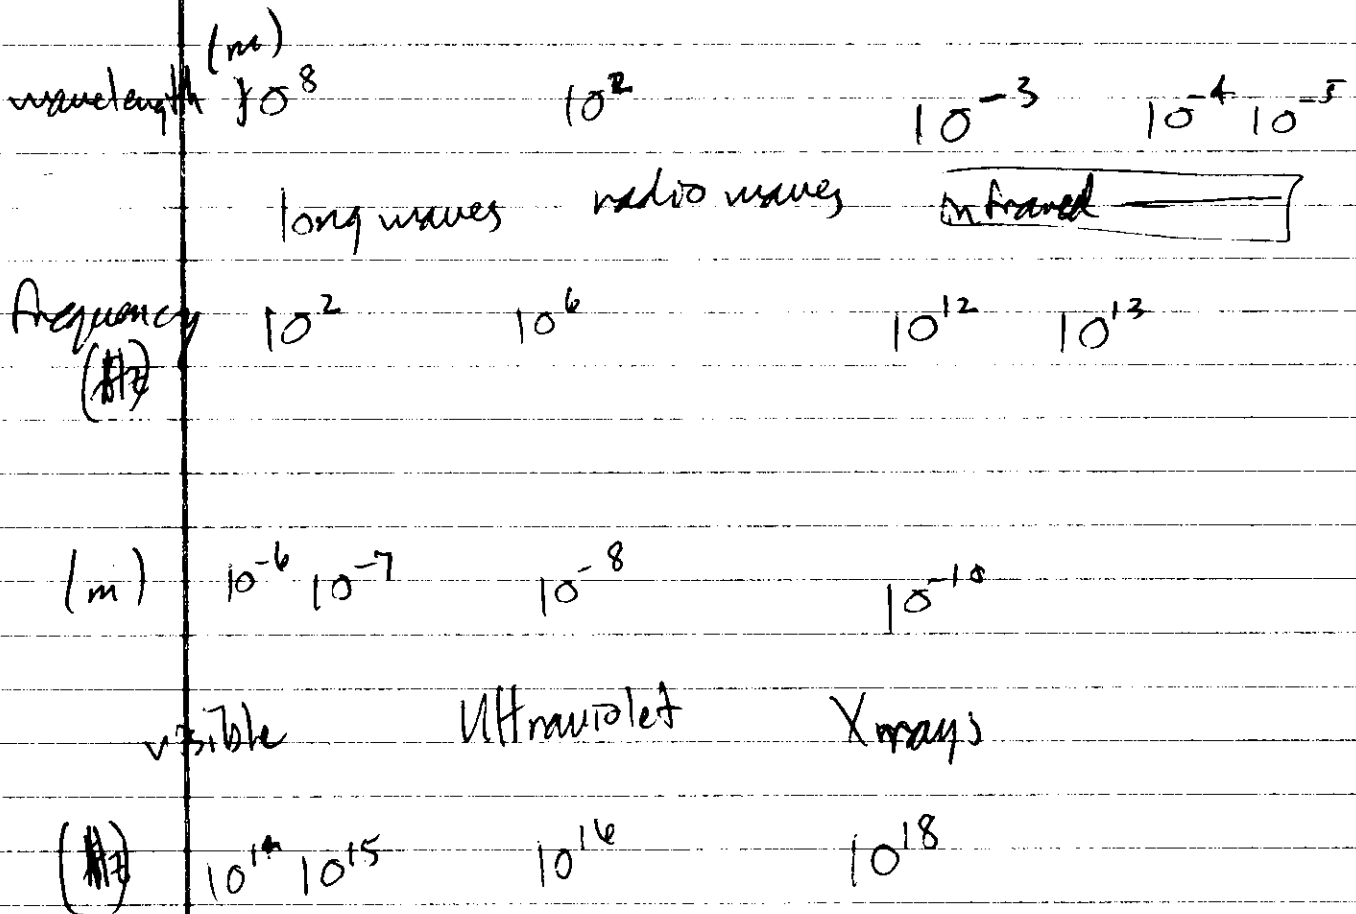 (m)
wavelength 10^8 10^2 10^-3 10^-4 10^-5
long waves radio waves infrared
frequency 10^2 10^6 10^12 10^13
(Hz)
(m) 10^-6 10^-7 10^-8 10^-10
visible Ultraviolet X rays
(Hz) 10^14 10^15 10^16 10^18